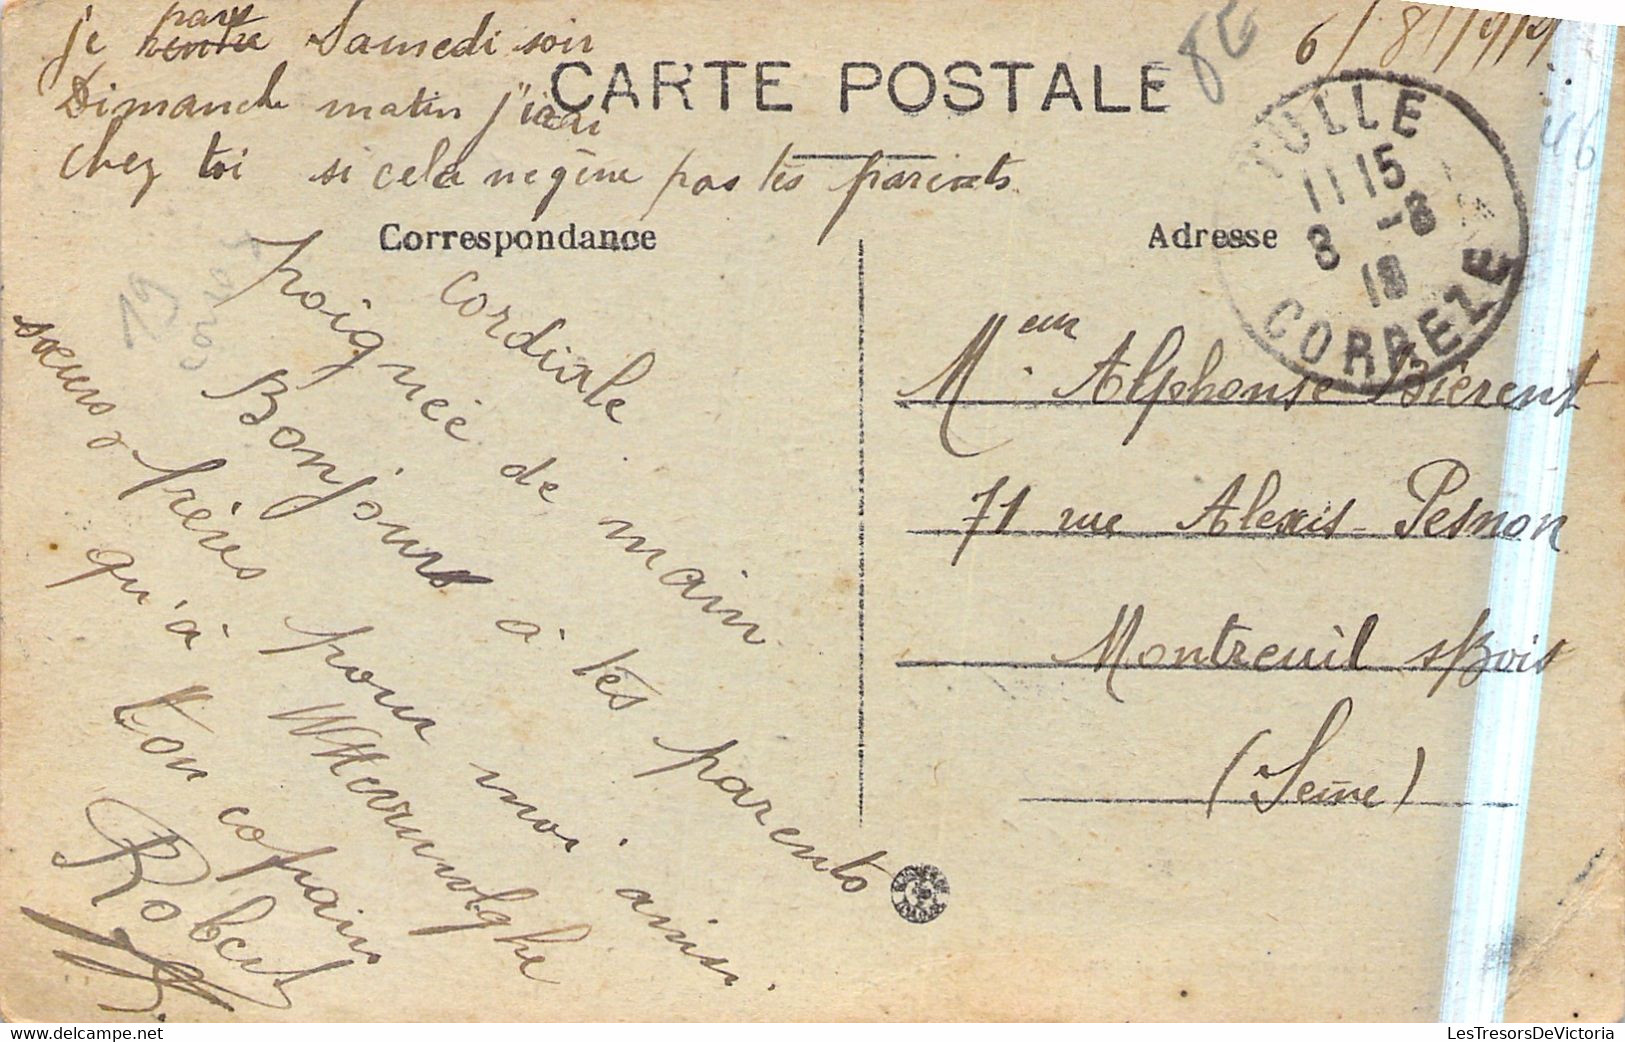 je pars rentre Samedi soir
Dimanche matin j'irai
chez toi si cela ne gêne pas tes parents
6/8/1919.
CARTE POSTALE
TULLE
11 15
8 -8
18
CORREZE
Correspondance
Adresse
cordiale
poignée de main
Bonjour à tes parents
sœurs & frères pour moi ainsi
qu'à
ton copain
Robert
Mr. Alphonse Biérent
71 rue Alexis-Pesnon
Montreuil s/Bois
(Seine)
19
LesTresorsDeVictoria.com